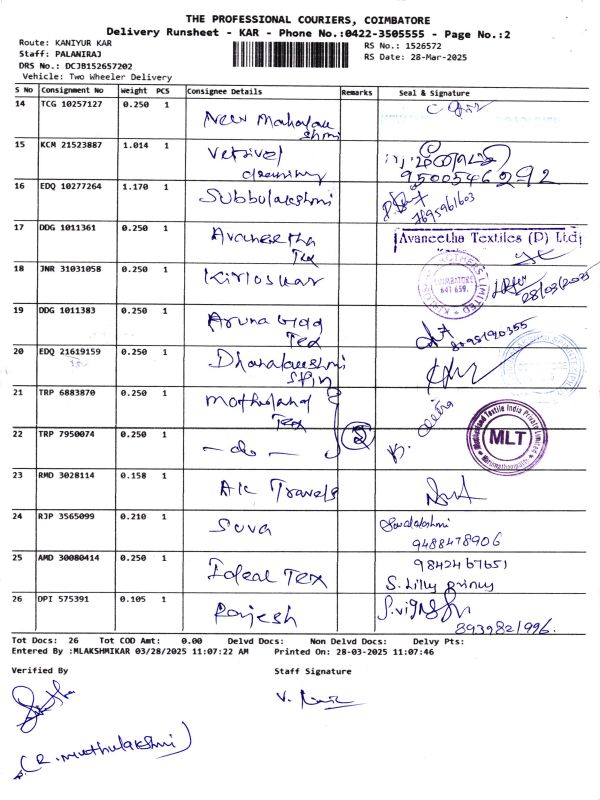 THE PROFESSIONAL COURIERS, COIMBATORE
Delivery Runsheet - KAR - Phone No.:0422-3505555 - Page No.:2
Route: KANIYUR KAR
RS No.: 1526572
Staff: PALANIRAJ
RS Date: 28-Mar-2025
DRS No.: DCJB152657202
Vehicle: Two Wheeler Delivery
S No Consignment No Weight PCS Consignee Details Remarks Seal & Signature
14 TCG 10257127 0.250 1 New Mahalakshmi
15 KCM 21523887 1.014 1 Vetrivel
9500546292
16 EDQ 10277264 1.170 1 Subbulakshmi
7695961603
17 DDG 1011361 0.250 1 Avaneetha Tex Avaneetha Textiles (P) Ltd
18 JNR 31031058 0.250 1 Kirloskar
COIMBATORE 641 659. 28/03/2025
19 DDG 1011383 0.250 1 Aruna Tex
8095190355
20 EDQ 21619159 0.250 1 Dhanalakshmi Spin
21 TRP 6883870 0.250 1 Motherland Tex
Motherland Textile India Private Limited
MLT
22 TRP 7950074 0.250 1 - do - 2
23 RMD 3028114 0.158 1 AK Travels
24 RJP 3565099 0.210 1 Suva
9488478906
25 AMD 30080414 0.250 1 Ideal Tex 9842467651
S. Lilly
26 DPI 575391 0.105 1 Rajesh
8939821996.
Tot Docs: 26 Tot COD Amt: 0.00 Delvd Docs: Non Delvd Docs: Delvy Pts:
Entered By :MLAKSHMIKAR 03/28/2025 11:07:22 AM Printed On: 28-03-2025 11:07:46
Verified By Staff Signature
(R. Muthulakshmi)